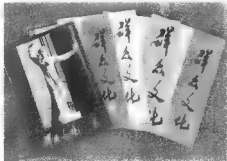 群众文化
群众文化
群众文化
群众文化